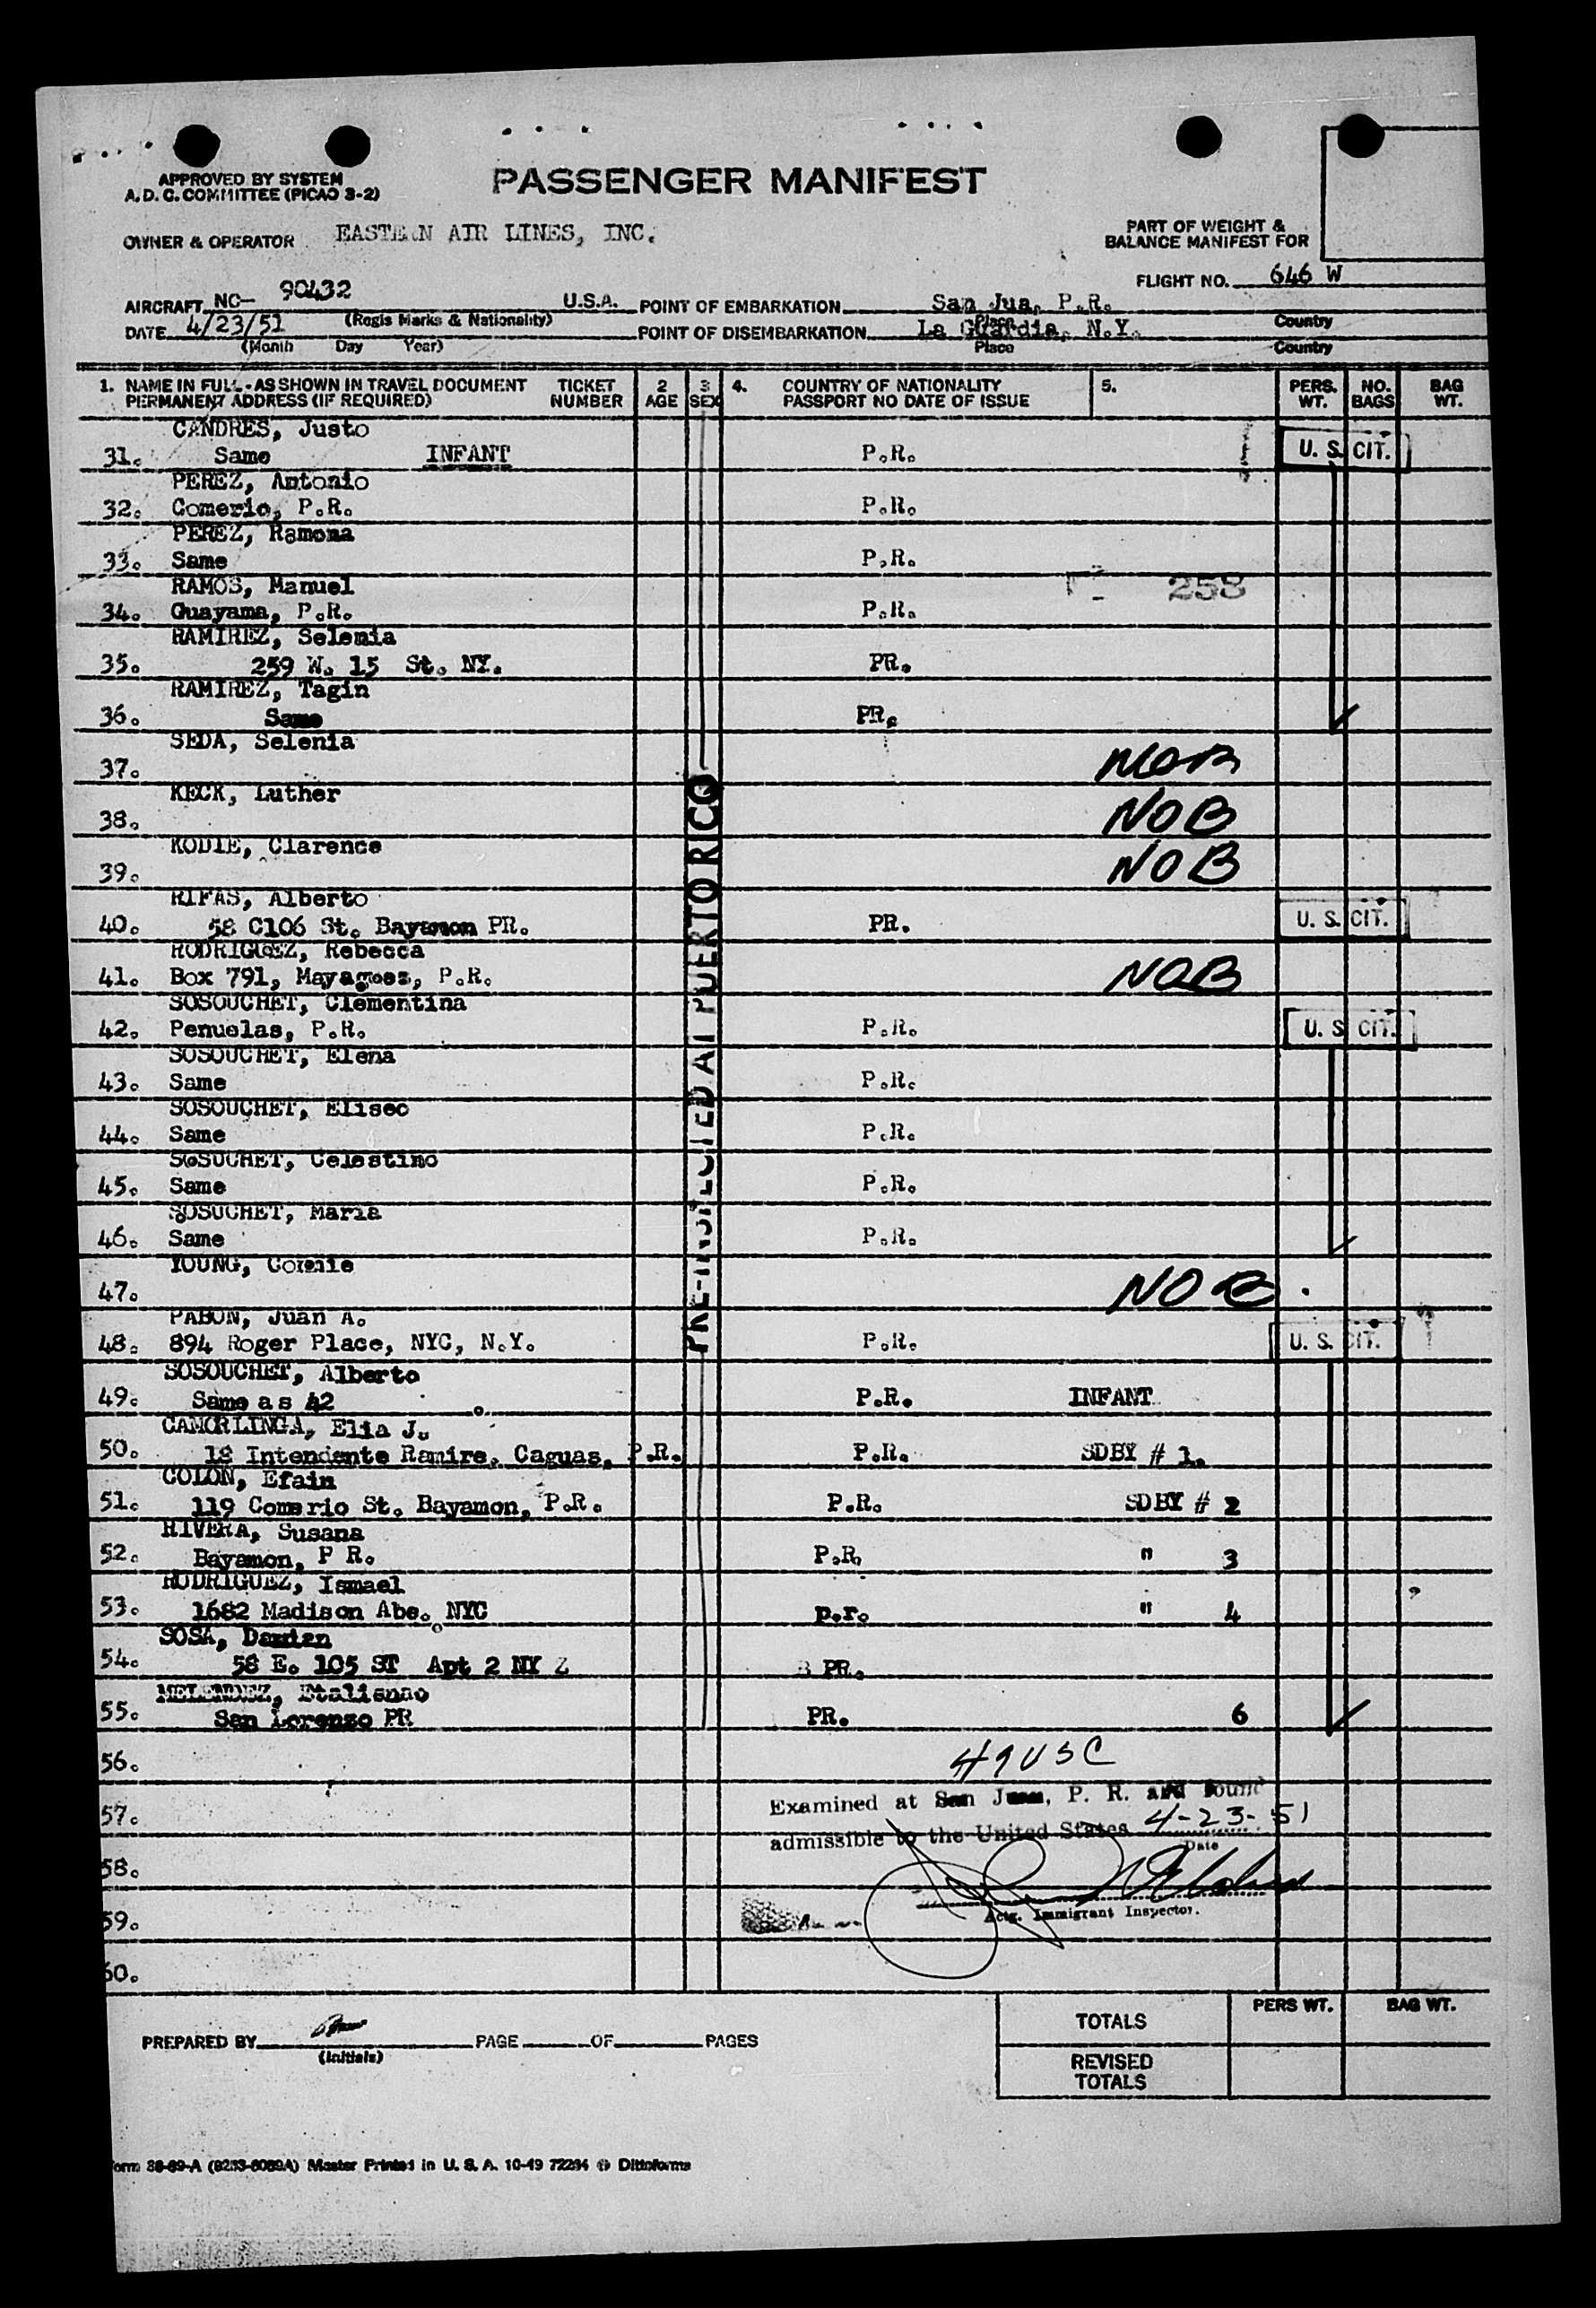 APPROVED BY SYSTEM
A.D.C. COMMITTEE (PICAO 3-2)
PASSENGER MANIFEST
OWNER & OPERATOR EASTERN AIR LINES, INC.
PART OF WEIGHT &
BALANCE MANIFEST FOR
FLIGHT NO. 646 W
AIRCRAFT NC- 90432 U.S.A. POINT OF EMBARKATION San Jua, P.R.
(Regis Marks & Nationality) Place Country
DATE 4/23/51 POINT OF DISEMBARKATION La Guardia, N.Y.
(Month Day Year) Place Country
1. NAME IN FULL - AS SHOWN IN TRAVEL DOCUMENT TICKET 2 3 4. COUNTRY OF NATIONALITY 5. PERS. NO. BAG
PERMANENT ADDRESS (IF REQUIRED) NUMBER AGE SEX PASSPORT NO DATE OF ISSUE WT. BAGS WT.
CANDRES, Justo
31. Same INFANT P.R. U. S. CIT.
PEREZ, Antonio
32. Comerio, P.R. P.R.
PEREZ, Ramona
33. Same P.R.
RAMOS, Manuel 258
34. Guayama, P.R. P.R.
RAMIREZ, Selenia
35. 259 W. 15 St. NY. PR.
RAMIREZ, Tagin
36. Same PR.
SEDA, Selenia
37. NOB
KECK, Luther
38. NOB
KODIE, Clarence
39. NOB
RIFAS, Alberto
40. 58 C106 St. Bayamon PR. PR. U. S. CIT.
RODRIGUEZ, Rebecca
41. Box 791, Mayagoez, P.R. NOB
SOSOUCHET, Clementina
42. Penuelas, P.R. P.R. U. S. CIT.
SOSOUCHET, Elena
43. Same P.R.
SOSOUCHET, Eliseo
44. Same P.R.
SOSUCHET, Celestino
45. Same P.R.
SOSUCHET, Maria
46. Same P.R.
YOUNG, Connie
47. NOB.
PABON, Juan A.
48. 894 Roger Place, NYC, N.Y. P.R. U. S. CIT.
SOSOUCHET, Alberto
49. Same as 42 P.R. INFANT
CAMORLINGA, Elia J.
50. 18 Intendente Ramire, Caguas, P.R. P.R. SDBY # 1.
COLON, Efain
51. 119 Comerio St. Bayamon, P.R. P.R. SDBY # 2
RIVERA, Susana
52. Bayamon, P R. P.R. " 3
RODRIGUEZ, Ismael
53. 1682 Madison Abe. NYC p.r. " 4
SOSA, Damian
54. 58 E. 105 ST Apt 2 NY Z PR.
MELENDEZ,
55. San Lorenzo PR PR. 6
PRE-INSPECTED AT PUERTO RICO
56. 49 USC
57. Examined at San Juan, P. R. and found
admissible to the United States 4-23-51
58. Date
59. Actg. Immigrant Inspector.
60.
TOTALS PERS WT. BAG WT.
PREPARED BY PAGE OF PAGES
(Initials)
REVISED
TOTALS
Form 88-69-A (8233-6089A) Master Printed in U. S. A. 10-49 72294 Dittoforms